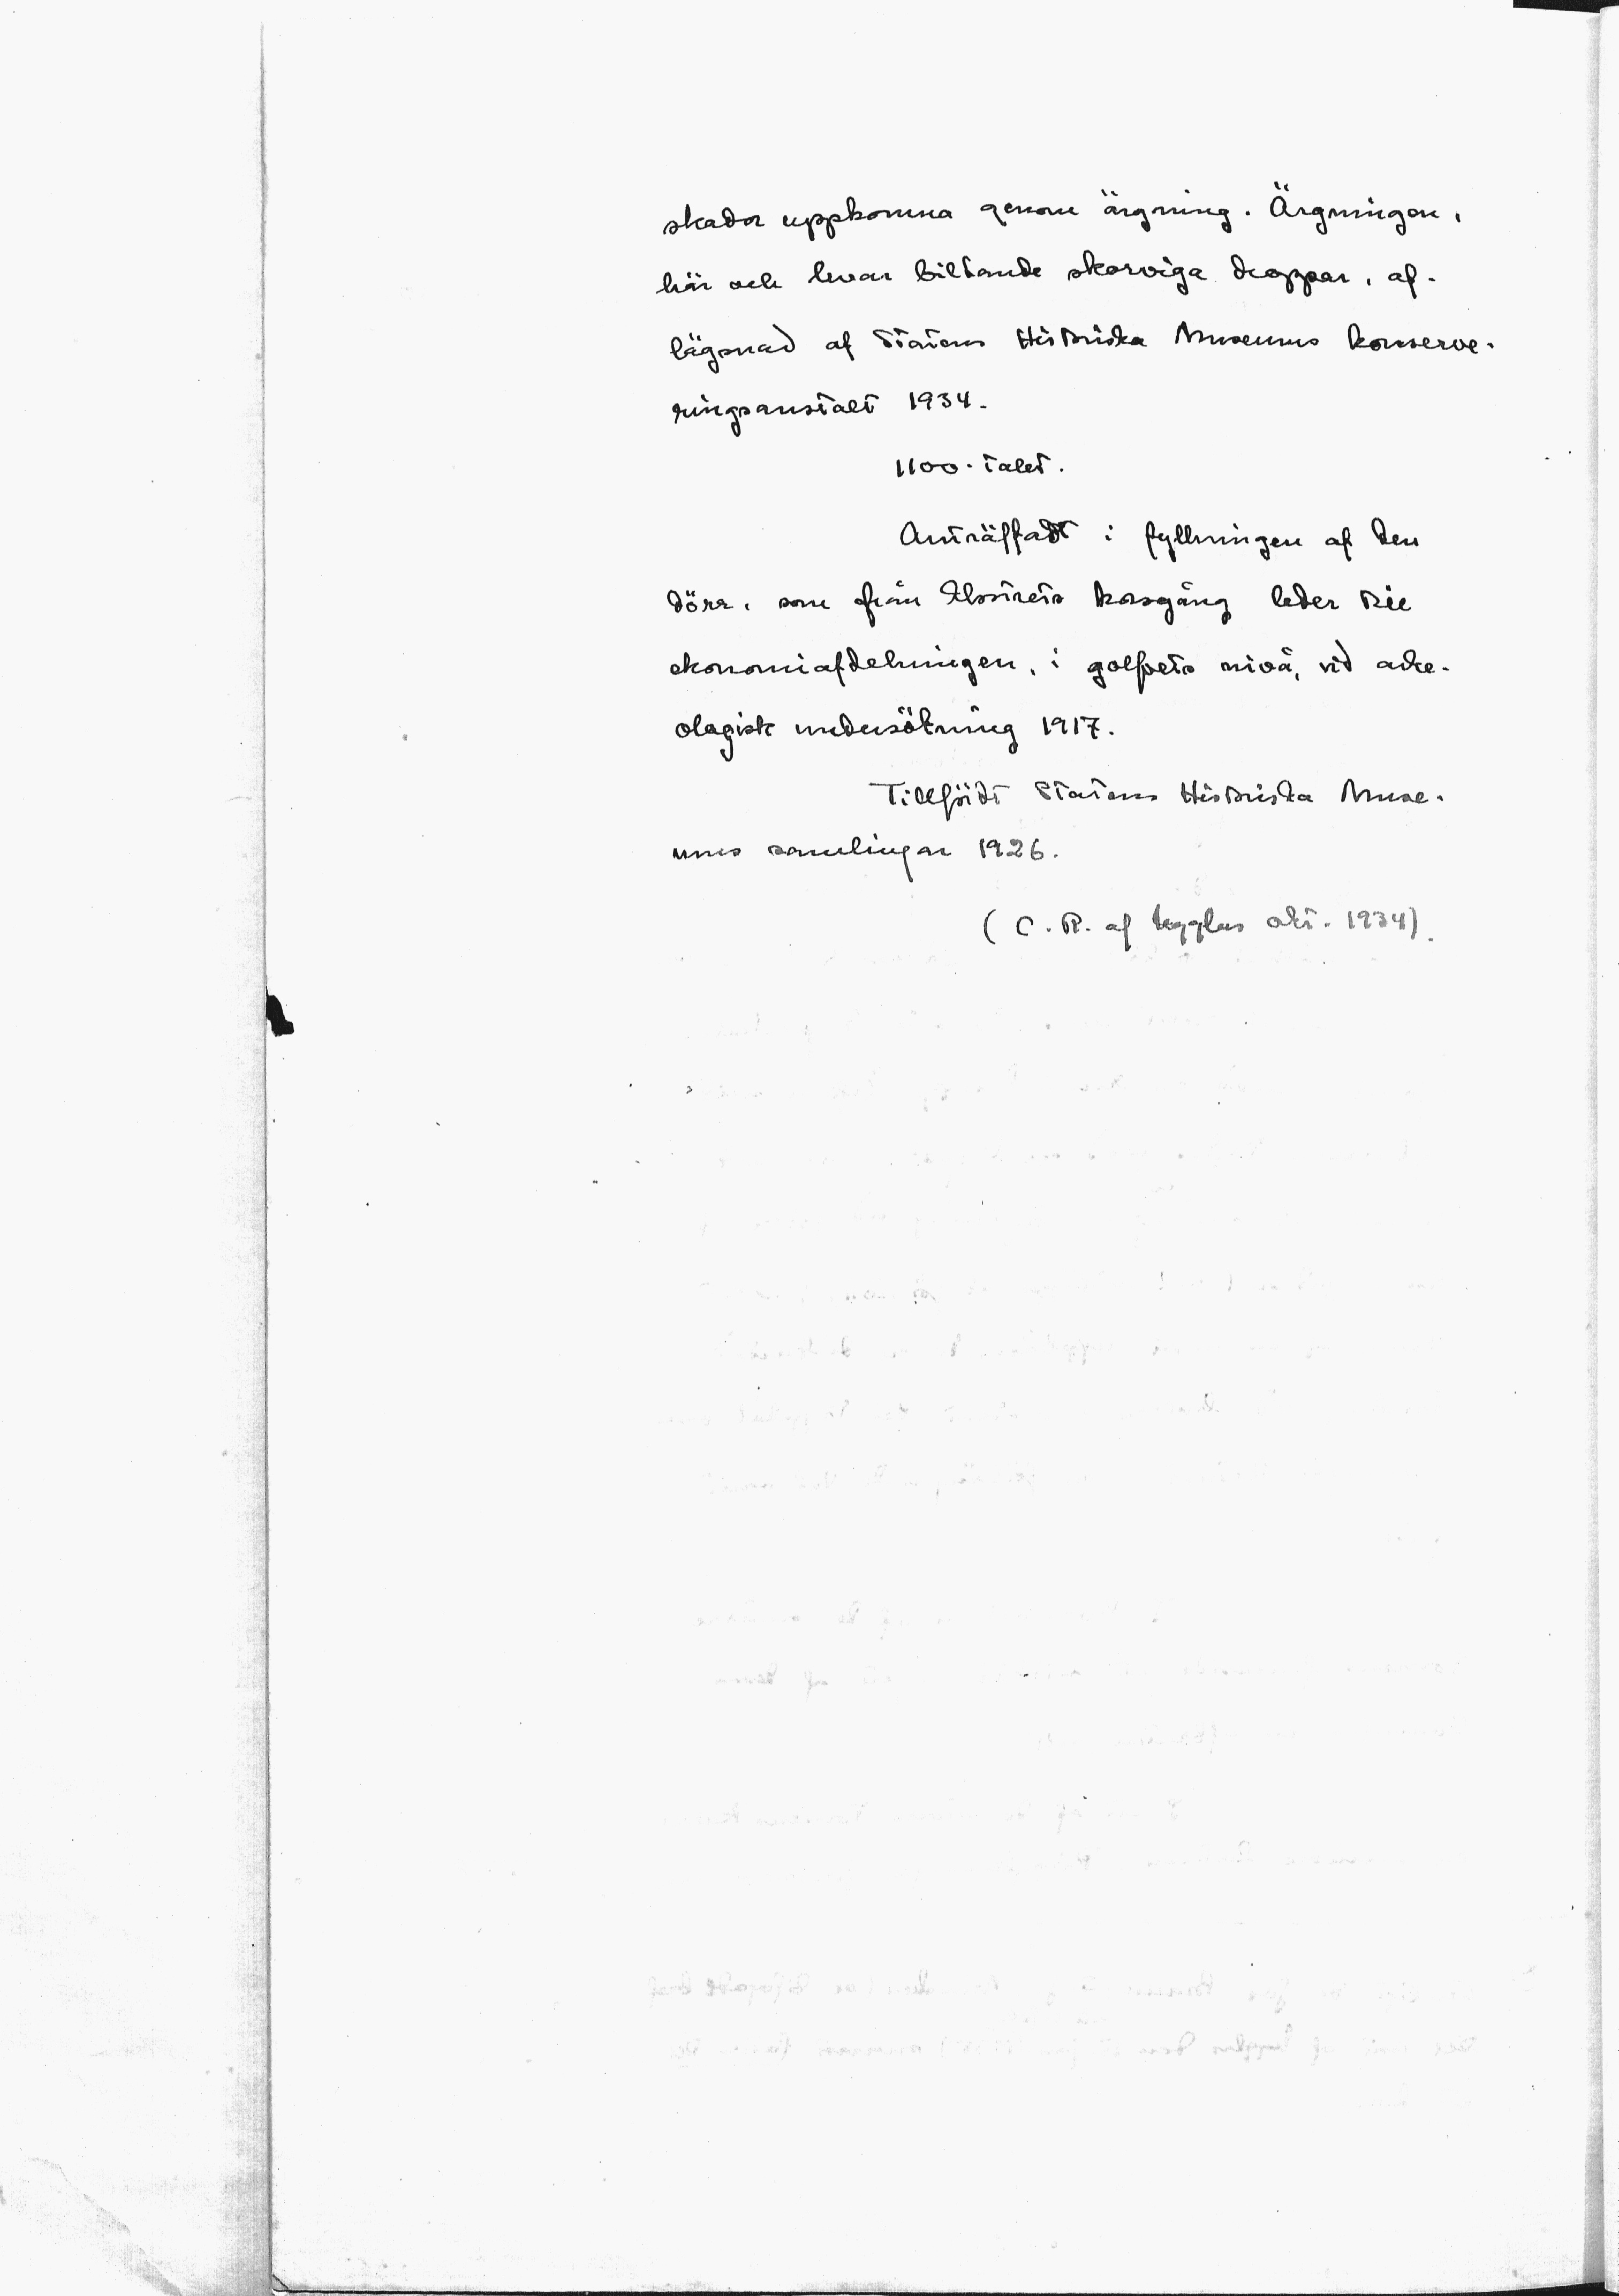 skador uppkomna genom ärgning. Ärgningen,
här och hvar bildande skorviga kroppar, af-
lägsnad af Statens Historiska Museums konserve-
ringsanstalt 1934.
1100-talet.
Anträffadt i fyllningen af den
dörr, som från klostrets korsgång leder till
ekonomiafdelningen, i golfvets nivå, vid arke-
ologisk undersökning 1917.
Tillfördt Statens Historiska Muse-
ums samlingar 1926.
(C. R. af Ugglas okt. 1934).